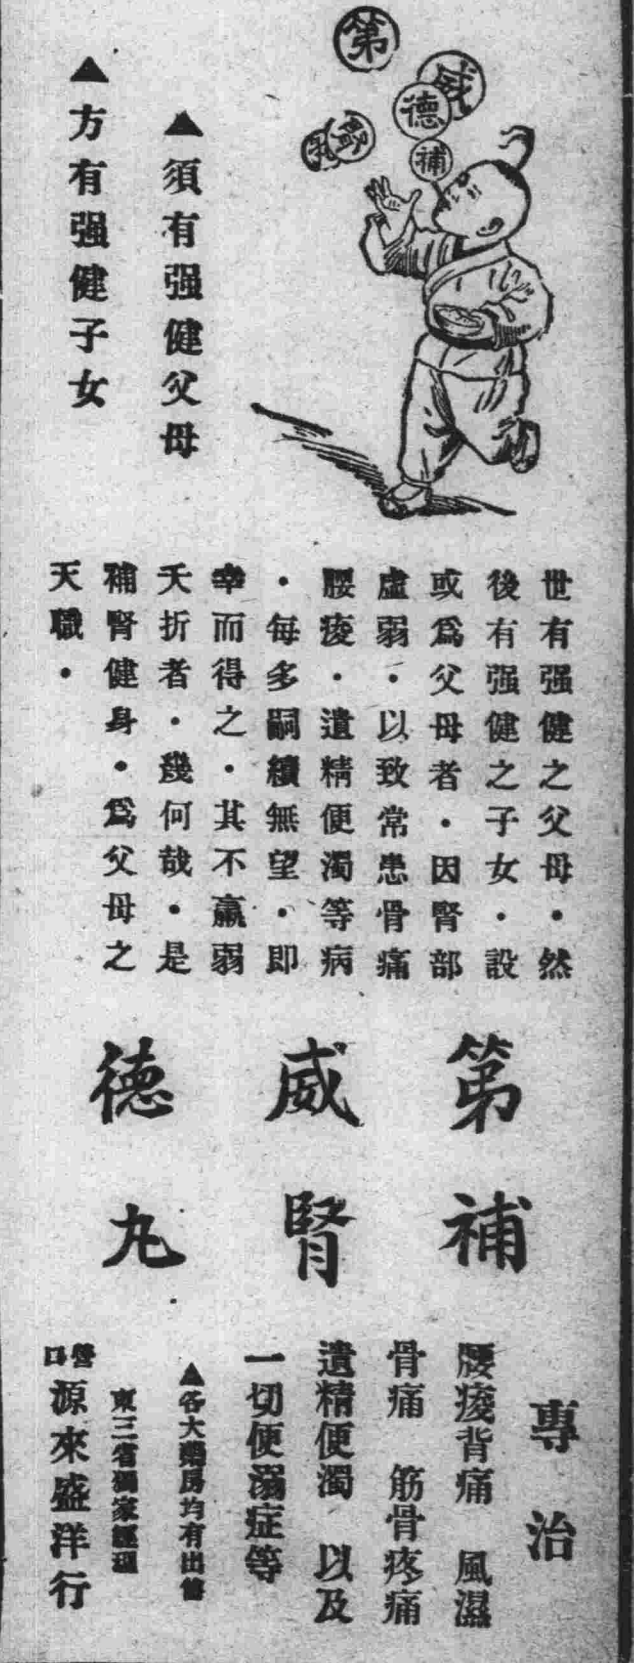 第
威
德
補
腎
丸
▲須有强健父母
▲方有强健子女
世有强健之父母・然
後有强健之子女・設
或爲父母者・因腎部
虛弱・以致常患骨痛
腰痠・遺精便濁等病
・每多嗣續無望・即
幸而得之・其不羸弱
夭折者・幾何哉・是
補腎健身・爲父母之
天職・
第威德
補腎丸
專治
腰痠背痛 風濕
骨痛 筋骨疼痛
遺精便濁 以及
一切便溺症等
▲各大藥房均有出售
東三省獨家經理
營口源來盛洋行